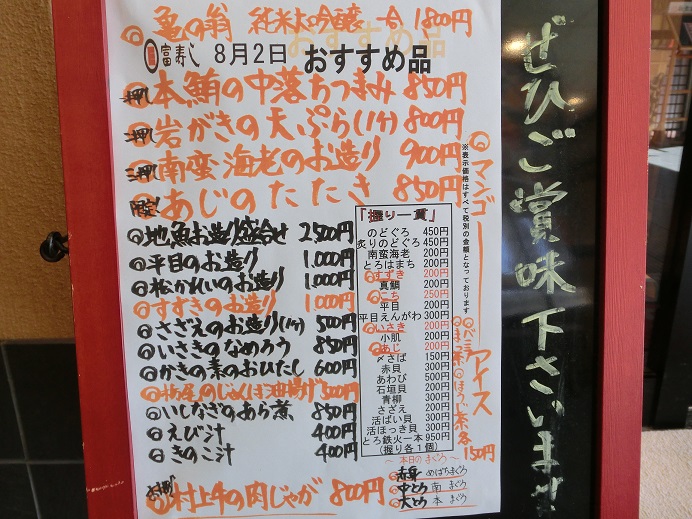 亀の翁 純米大吟醸 一合 1800円
富寿し 8月2日 おすすめ品
一押し 本鮪の中落ちつまみ 850円
二押し 岩がきの天ぷら(1ケ) 800円
三押し 南蛮海老のお造り 900円
あじのたたき 850円
地魚お造り盛合せ 2500円
平目のお造り 1,000円
松かれいのお造り 1,000円
すずきのお造り 1,000円
さざえのお造り(1ケ) 500円
いさきのなめろう 850円
かきの素のおひたし 600円
栃尾のじゃんぼ油揚げ 500円
いしなぎのあら煮 850円
えび汁 400円
きのこ汁 400円
村上牛の肉じゃが 800円
「握り一貫」
のどぐろ 450円
炙りのどぐろ 450円
南蛮海老 200円
とろはまち 200円
すずき 200円
真鯛 200円
こち 250円
平目 200円
平目えんがわ 300円
いさき 200円
小肌 200円
あじ 200円
〆さば 150円
赤貝 300円
あわび 500円
石垣貝 200円
青柳 300円
さざえ 200円
活ばい貝 300円
活ほっき貝 300円
とろ鉄火一本 950円
(握り各1個)
～本日のまぐろ～
赤身 めばちまぐろ
中とろ 南まぐろ
大とろ 本まぐろ
※表示価格はすべて税別の金額となっております
マンゴー
アイス
バニラ
まっ茶
ほうじ茶 各150円
ぜひご賞味下さいませ